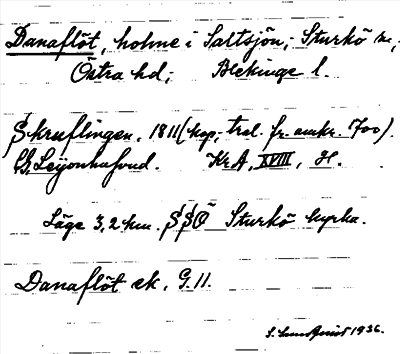 Danaflöt, holme i Saltsjön; Sturkö sn,
Östra hd; Blekinge l.
Skruflingen. 1811 (kop. trol. fr. omkr. 1700).
G. Leijonhufvud. KrA, XVIII, H.
Läge 3,2 km. SSÖ Sturkö kyrka.
Danaflöt ek. G.11.
1936.